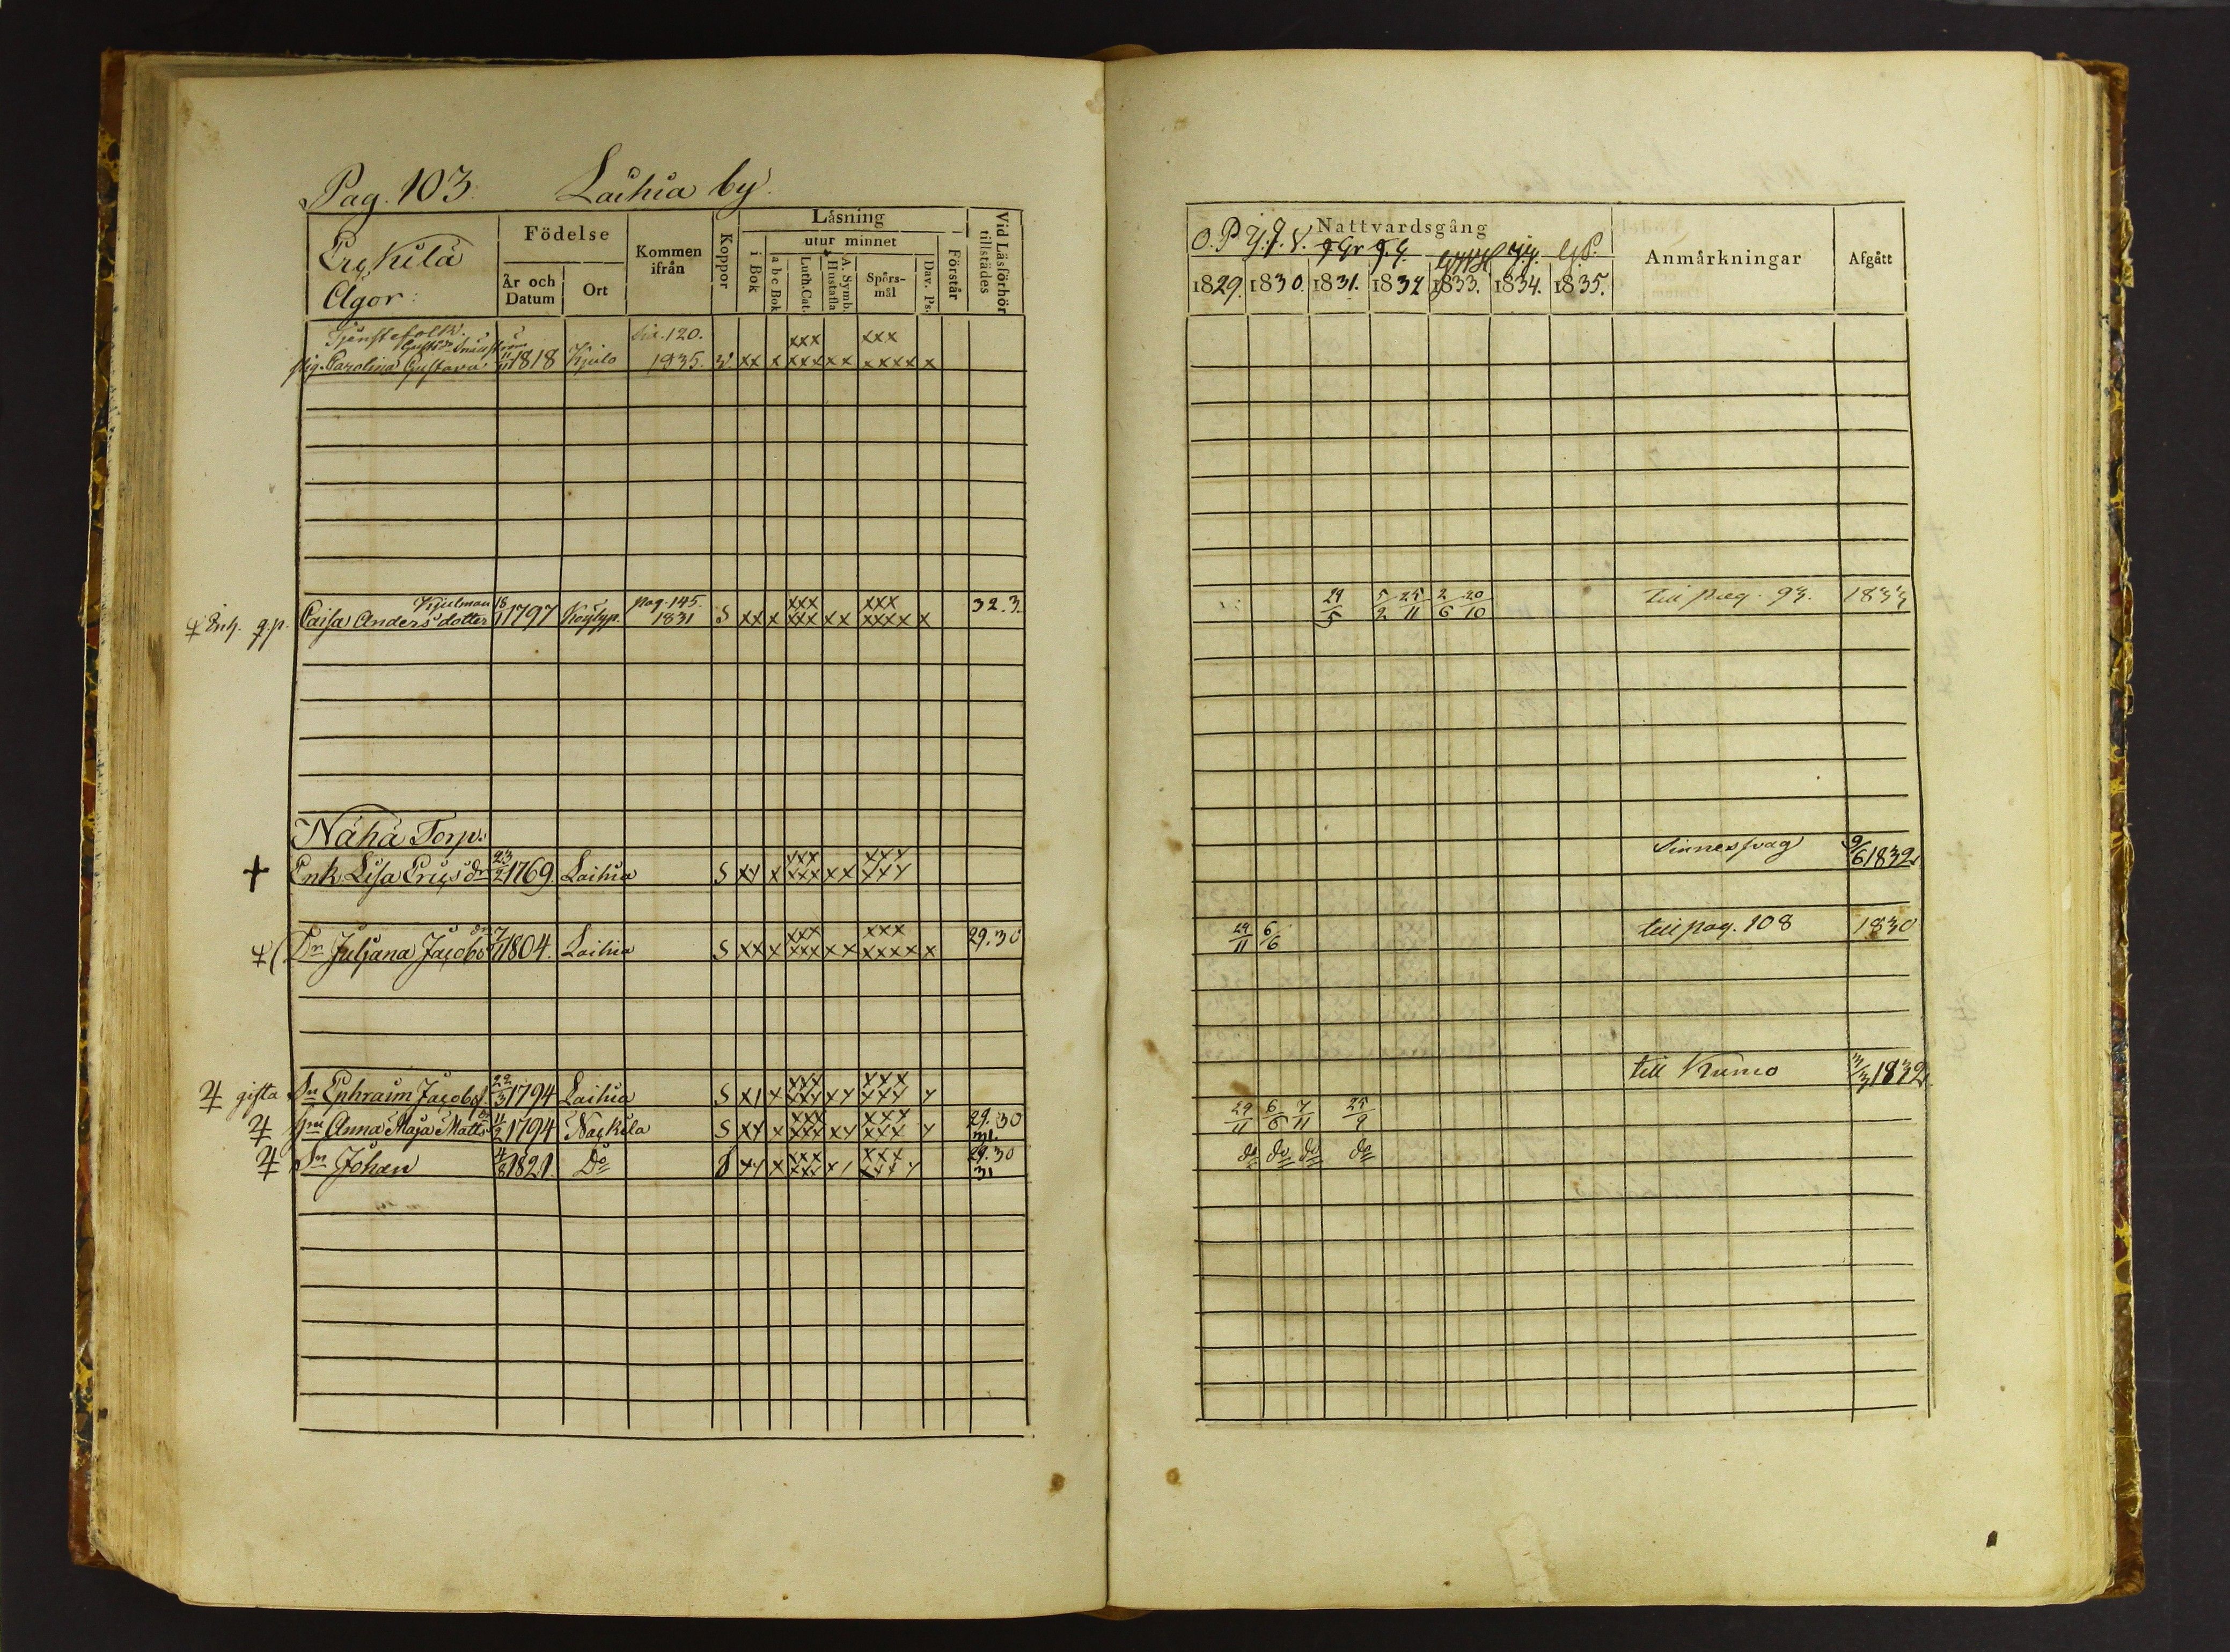 Pag. 103. Laihia by.
Erckilä
Ägor:
Födelse
År och Datum
Ort
Kommen ifrån
Koppor
Läsning
utur minnet
i Bok
a b c Bok
Luth. Cat.
Hustafla
A. Symb.
Spörsmål
Dav. Ps.
Förstår
Vid Läsförhör tillstädes
Nattvardsgång
1829. 1830. 1831. 1832 1833. 1834. 1835.
Anmärkningar
Afgått
Tjenstefolk.
pig. Carolina Gustava 1818 Kjulo 120. 1835. xx x xxx xxx xx xxx xxxx x
Enk. Caisa Anders dotter Kjulman 18 1797 pag. 145. 1831 S xx x xxx xxx xx xxx xxxx x 32.3. 29/5 5/2 25/11 2/6 20/10 till pag. 93. 1833
Nähä Torp.
+ Enk. Lisa Erics dr 23/2 1769 Laihia S xx x xxx xxx xx xxx xxx Sinnessvag 9/6 1832
Dr Juljana Jacobs dr 1804. Laihia S xx x xxx xxx xx xxx xxxx x 29.30 29/11 6/6 till pag. 108 1830
gifta Sn Ephraim Jacobs. 22/3 1794 Laihia S xx x xxx xxx xx xxx xxx x till Kumo 1832
Hu Anna Maja Matts dr 11/2 1794 Nackila S xx x xxx xxx xx xxx xxx x 29.30 31. 29/11 6/6 7/11 25/9
Sn Johan 4/8 1821. Do S xx x xxx xxx xx xxx xxx x 29.30 31 do do do do